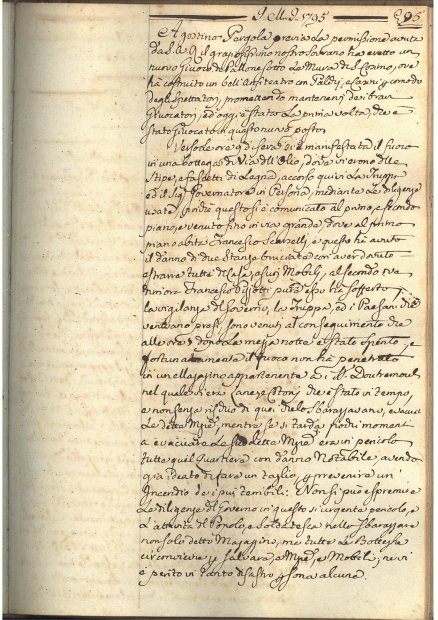 1795
295
Agostino Pargola previa la permissione avuta
da S. A. R. il graziosissimo nostro Sovrano ha eretto un
nuovo Giuoco di Pallone sotto le Mura di S. Cosimo, ove
ha costruito un bell'Anfiteatro con Palchi, e Scagni p comodo
degli Spettatori, promettendo mantenervi dei bravi
Giuocatori, ed oggi è stata la prima volta, che è
stato giuocato in questo nuovo posto.
Verso le ore 9 di sera si è manifestato il fuoco
in una bottega di Via dell'Olio, dove vi erono delle
Stipe, e fascetti di Legna, accorso quivi la Truppa
ed il Sig. Governatore in Persona, mediante le diligenze
usate, poichè questo si è comunicato al primo, e secondo
piano, e venuto fino in via grande, dove al primo
piano abita Francesco e questo ha avuto
il danno di due Stanze bruciate con aver dovuto
estrarre tutte de suoi Mobili, al secondo
Francesco pure esso ha sofferto,
la vigilanza del Governo, la Truppa, ed i Paesani che
venivano presi, sono venuti al conseguimento che
alle ore 3 dopo la mezza notte è stato spento, e
fortunatamente il fuoco non ha penetrato
in un Magazzino appartenente a Doutremoul
nel quale vi era che è stato in tempo,
e non senza rischio di quei che lo sbarazzavano, evacuare
le dette, mentre se si tardava pochi momenti
a evacuare le suddette era in pericolo
tutto quel Quartiere con danno Notabile, avendo
già ideato di fare un taglio, p prevenire un
Incendio dei più temibili: Non si può esprimere
le diligenze del Governo in questo sì urgente pericolo, e
l'attività del Popolo, e Soldatesca nello sbarazzare
non solo detti Magazzini, ma tutte le Botteghe
circonvicine p salvare, e Mobili, nè vi
è perito in tanto disastro p.sona alcuna.